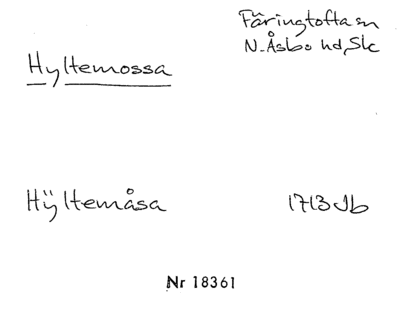 Färingtofta sn
N. Åsbo hd, Sk
Hyltemossa
Hÿltemåsa 1713 Jb
Nr 18361